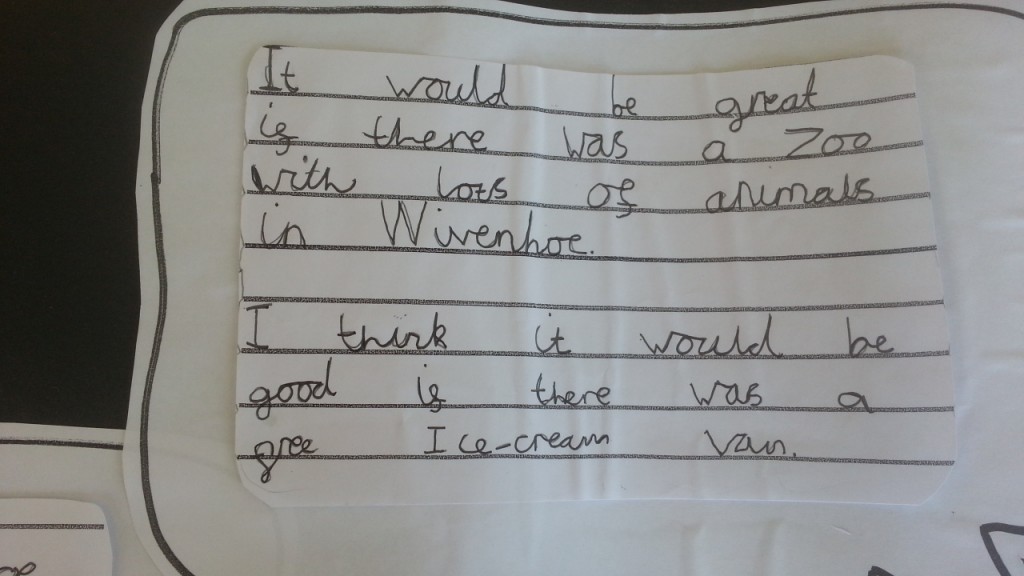 It would be great
if there was a Zoo
with lots of animals
in Wivenhoe.
I think it would be
good if there was a
free Ice-cream van.